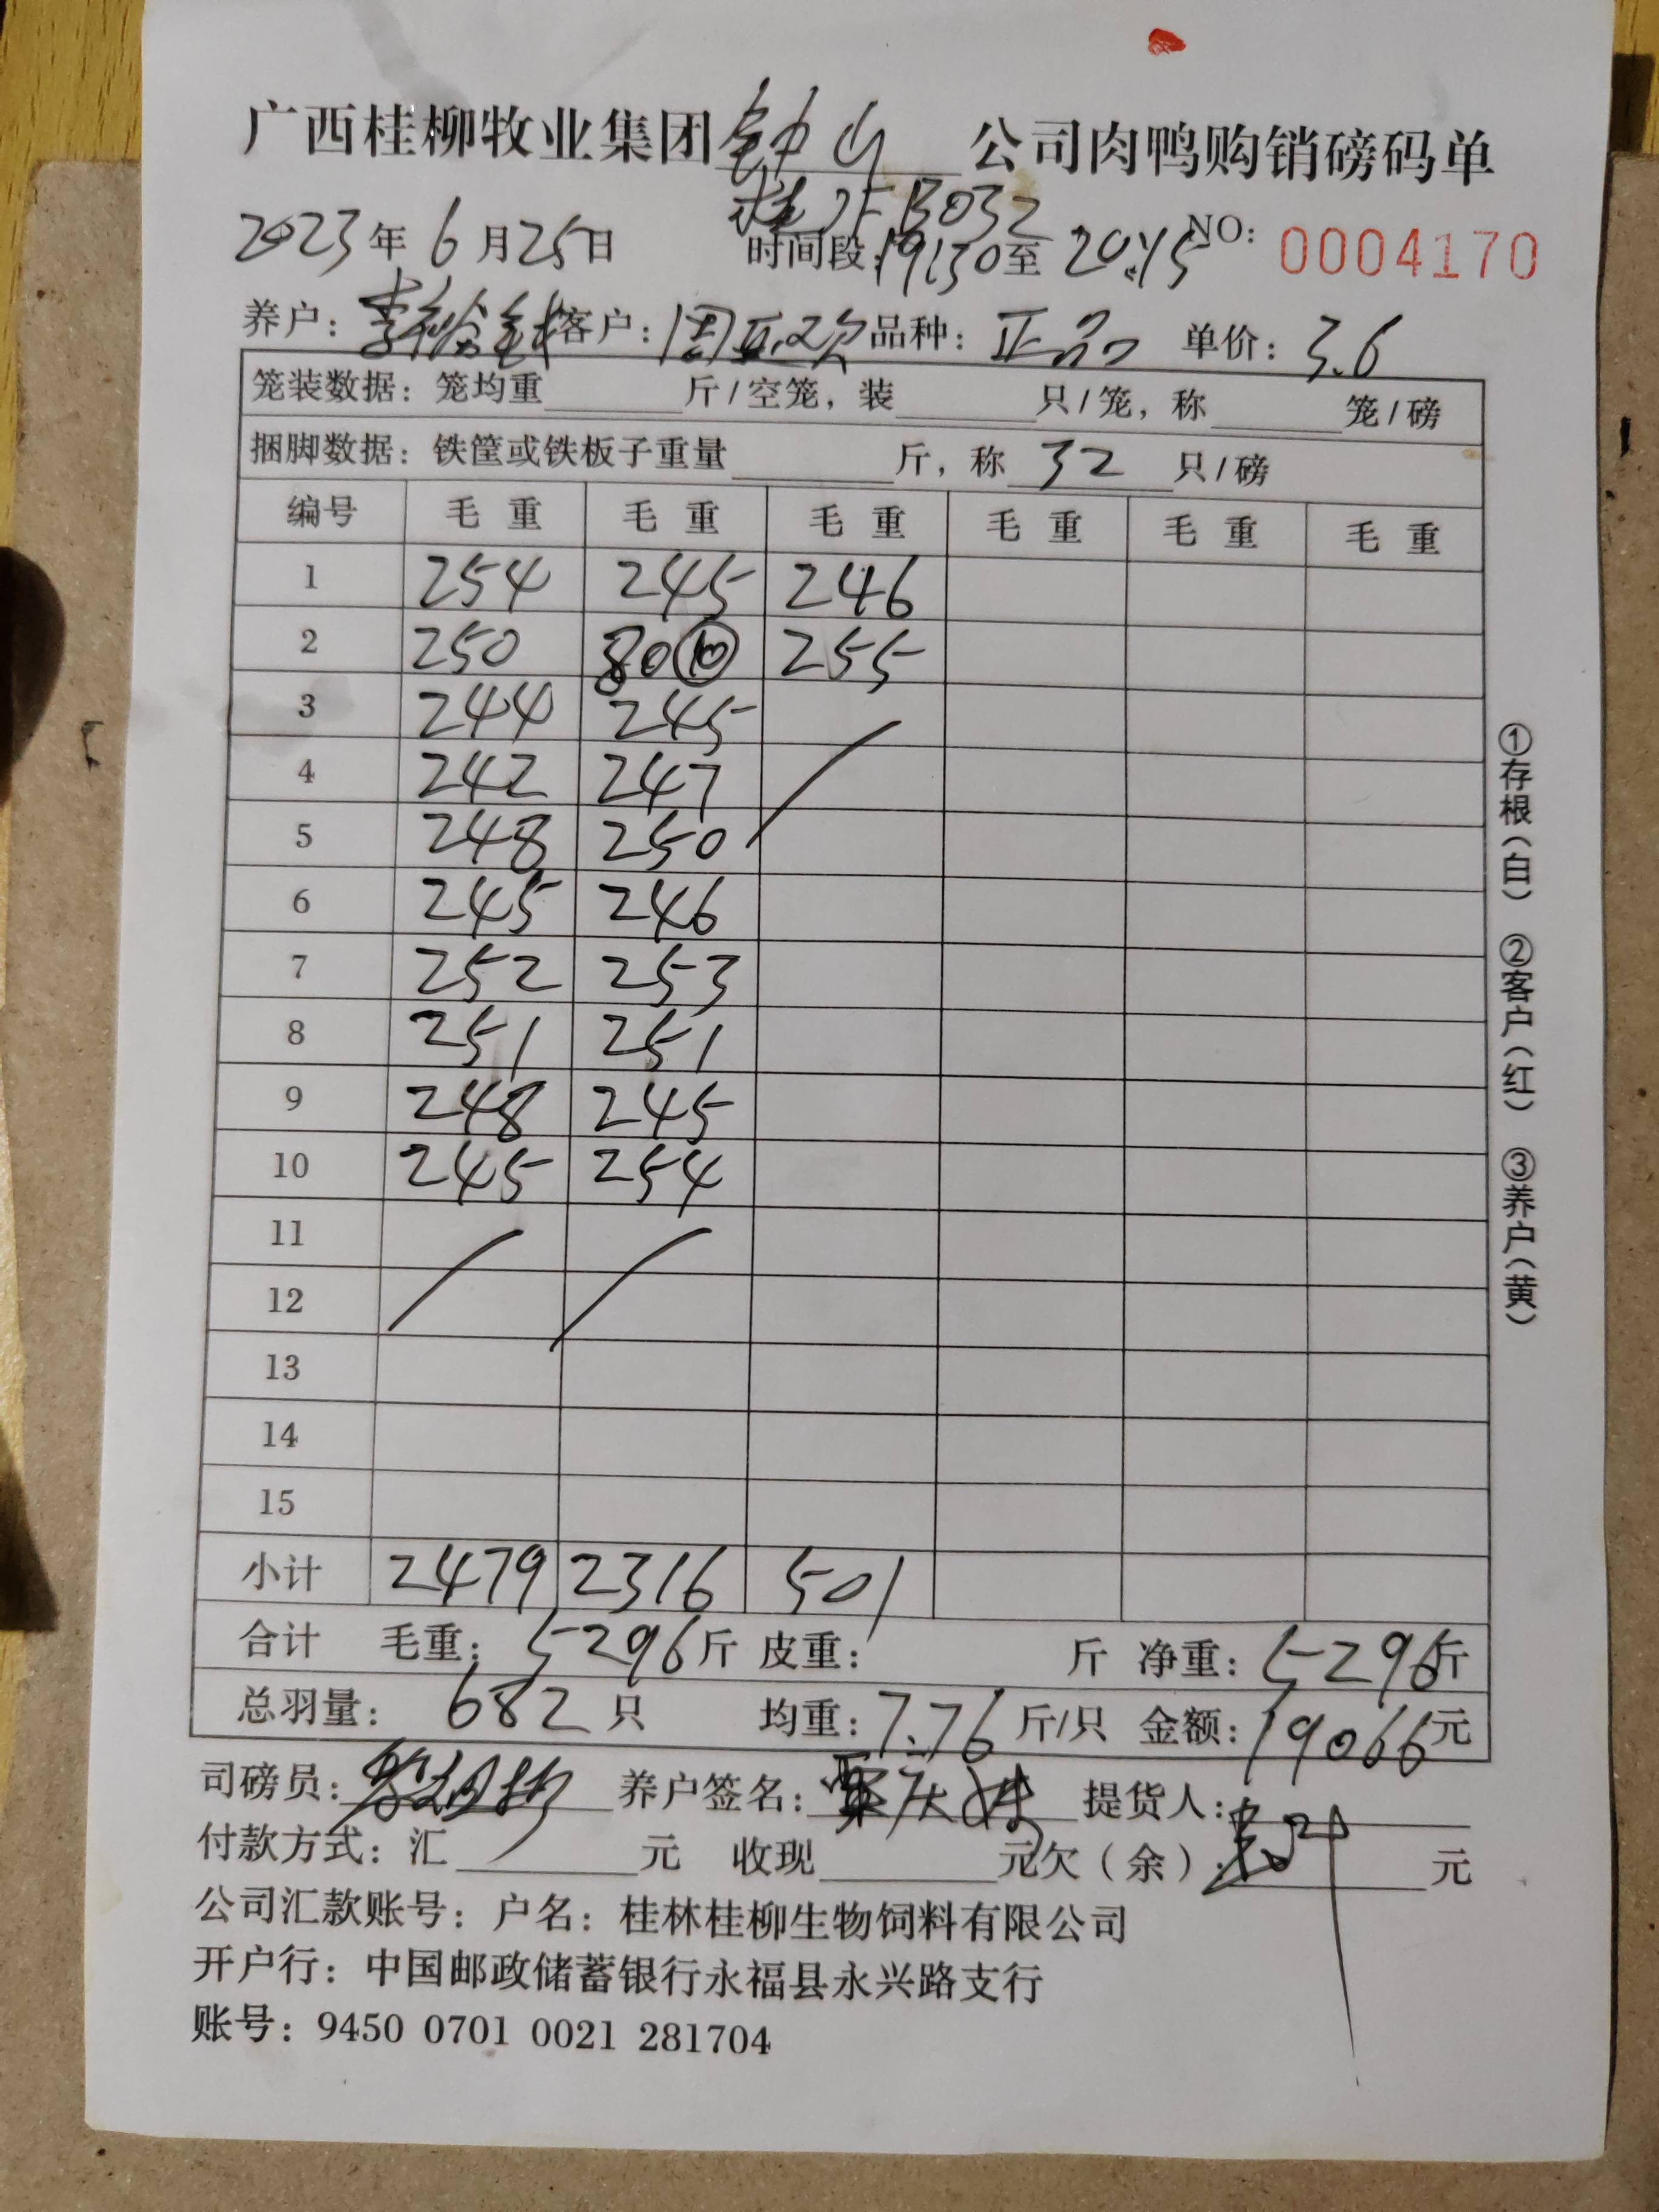 广西桂柳牧业集团 钟山 公司肉鸭购销磅码单
B032
2023年6月25日 时间段:19:30至20:45 NO: 0004170
养户: 客户: 周 品种: 正品 单价: 3.6
笼装数据: 笼均重 斤/空笼, 装 只/笼, 称 笼/磅
捆脚数据: 铁筐或铁板子重量 斤, 称 32 只/磅
编号 毛重 毛重 毛重 毛重 毛重 毛重
1 254 245 246
2 250 80⑩ 255
3 244 245
4 242 247
5 248 250
6 245 246
7 252 253
8 251 251
9 248 245
10 245 254
11
12
13
14
15
小计 2479 2316 501
合计 毛重: 5296斤 皮重: 斤 净重: 5296斤
总羽量: 682只 均重: 7.76斤/只 金额: 19066元
司磅员: 养户签名: 提货人:
付款方式: 汇 元 收现 元 欠(余) 元
公司汇款账号: 户名: 桂林桂柳生物饲料有限公司
开户行: 中国邮政储蓄银行永福县永兴路支行
账号: 9450 0701 0021 281704
①存根(白) ②客户(红) ③养户(黄)